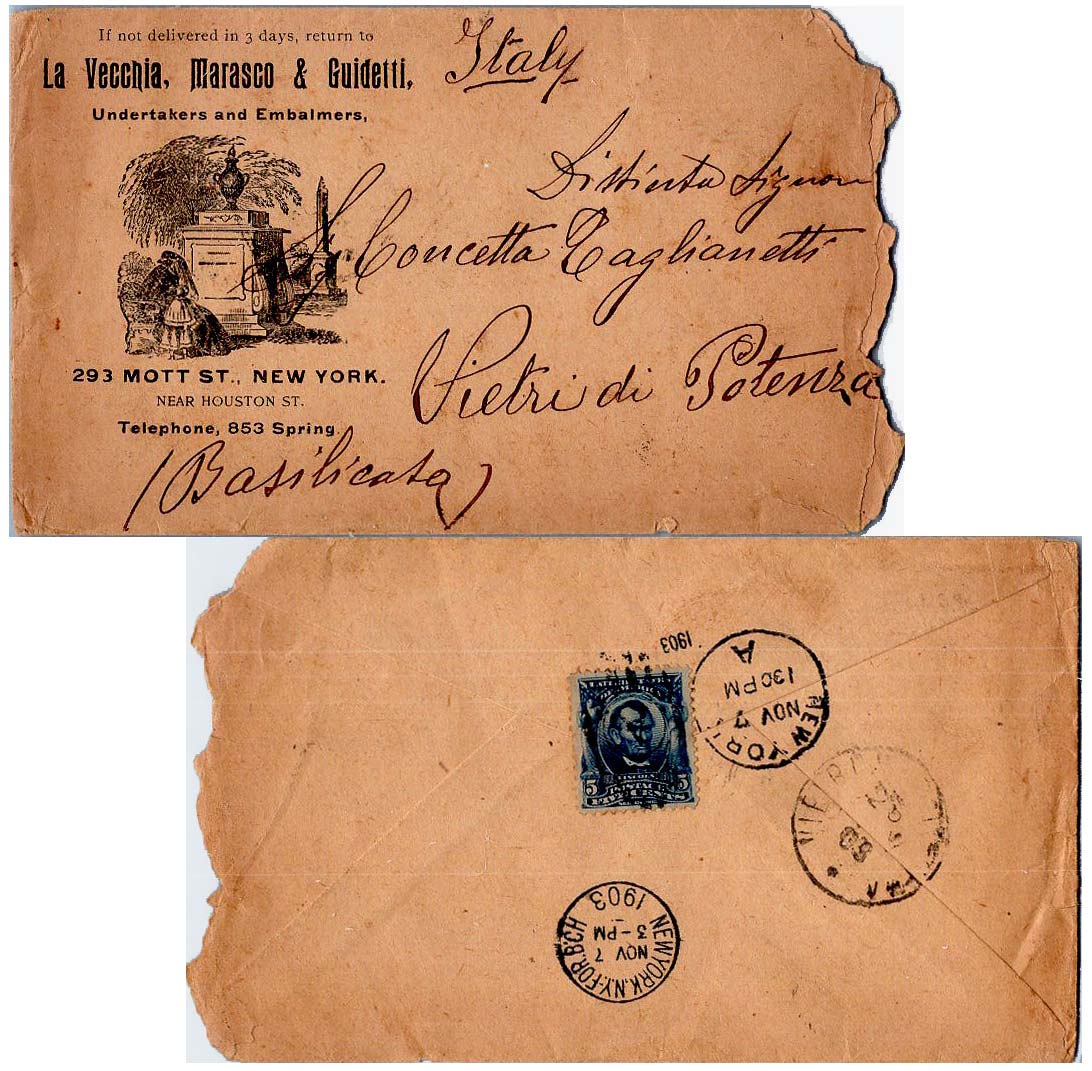 If not delivered in 3 days, return to
La Vecchia, Marasco & Guidetti,
Undertakers and Embalmers,
293 MOTT ST., NEW YORK.
NEAR HOUSTON ST.
Telephone, 853 Spring
Italy
Distinta Signora
Concetta Taglianetti
Vietri di Potenza
(Basilicata)
1903
NEW YORK
NOV 7
130 PM
A
LINCOLN
5 5
POSTAGE
FIVE CENTS
VIETRI
03
NEW YORK, N.Y. FOR. BCH
NOV 7
3-PM
1903